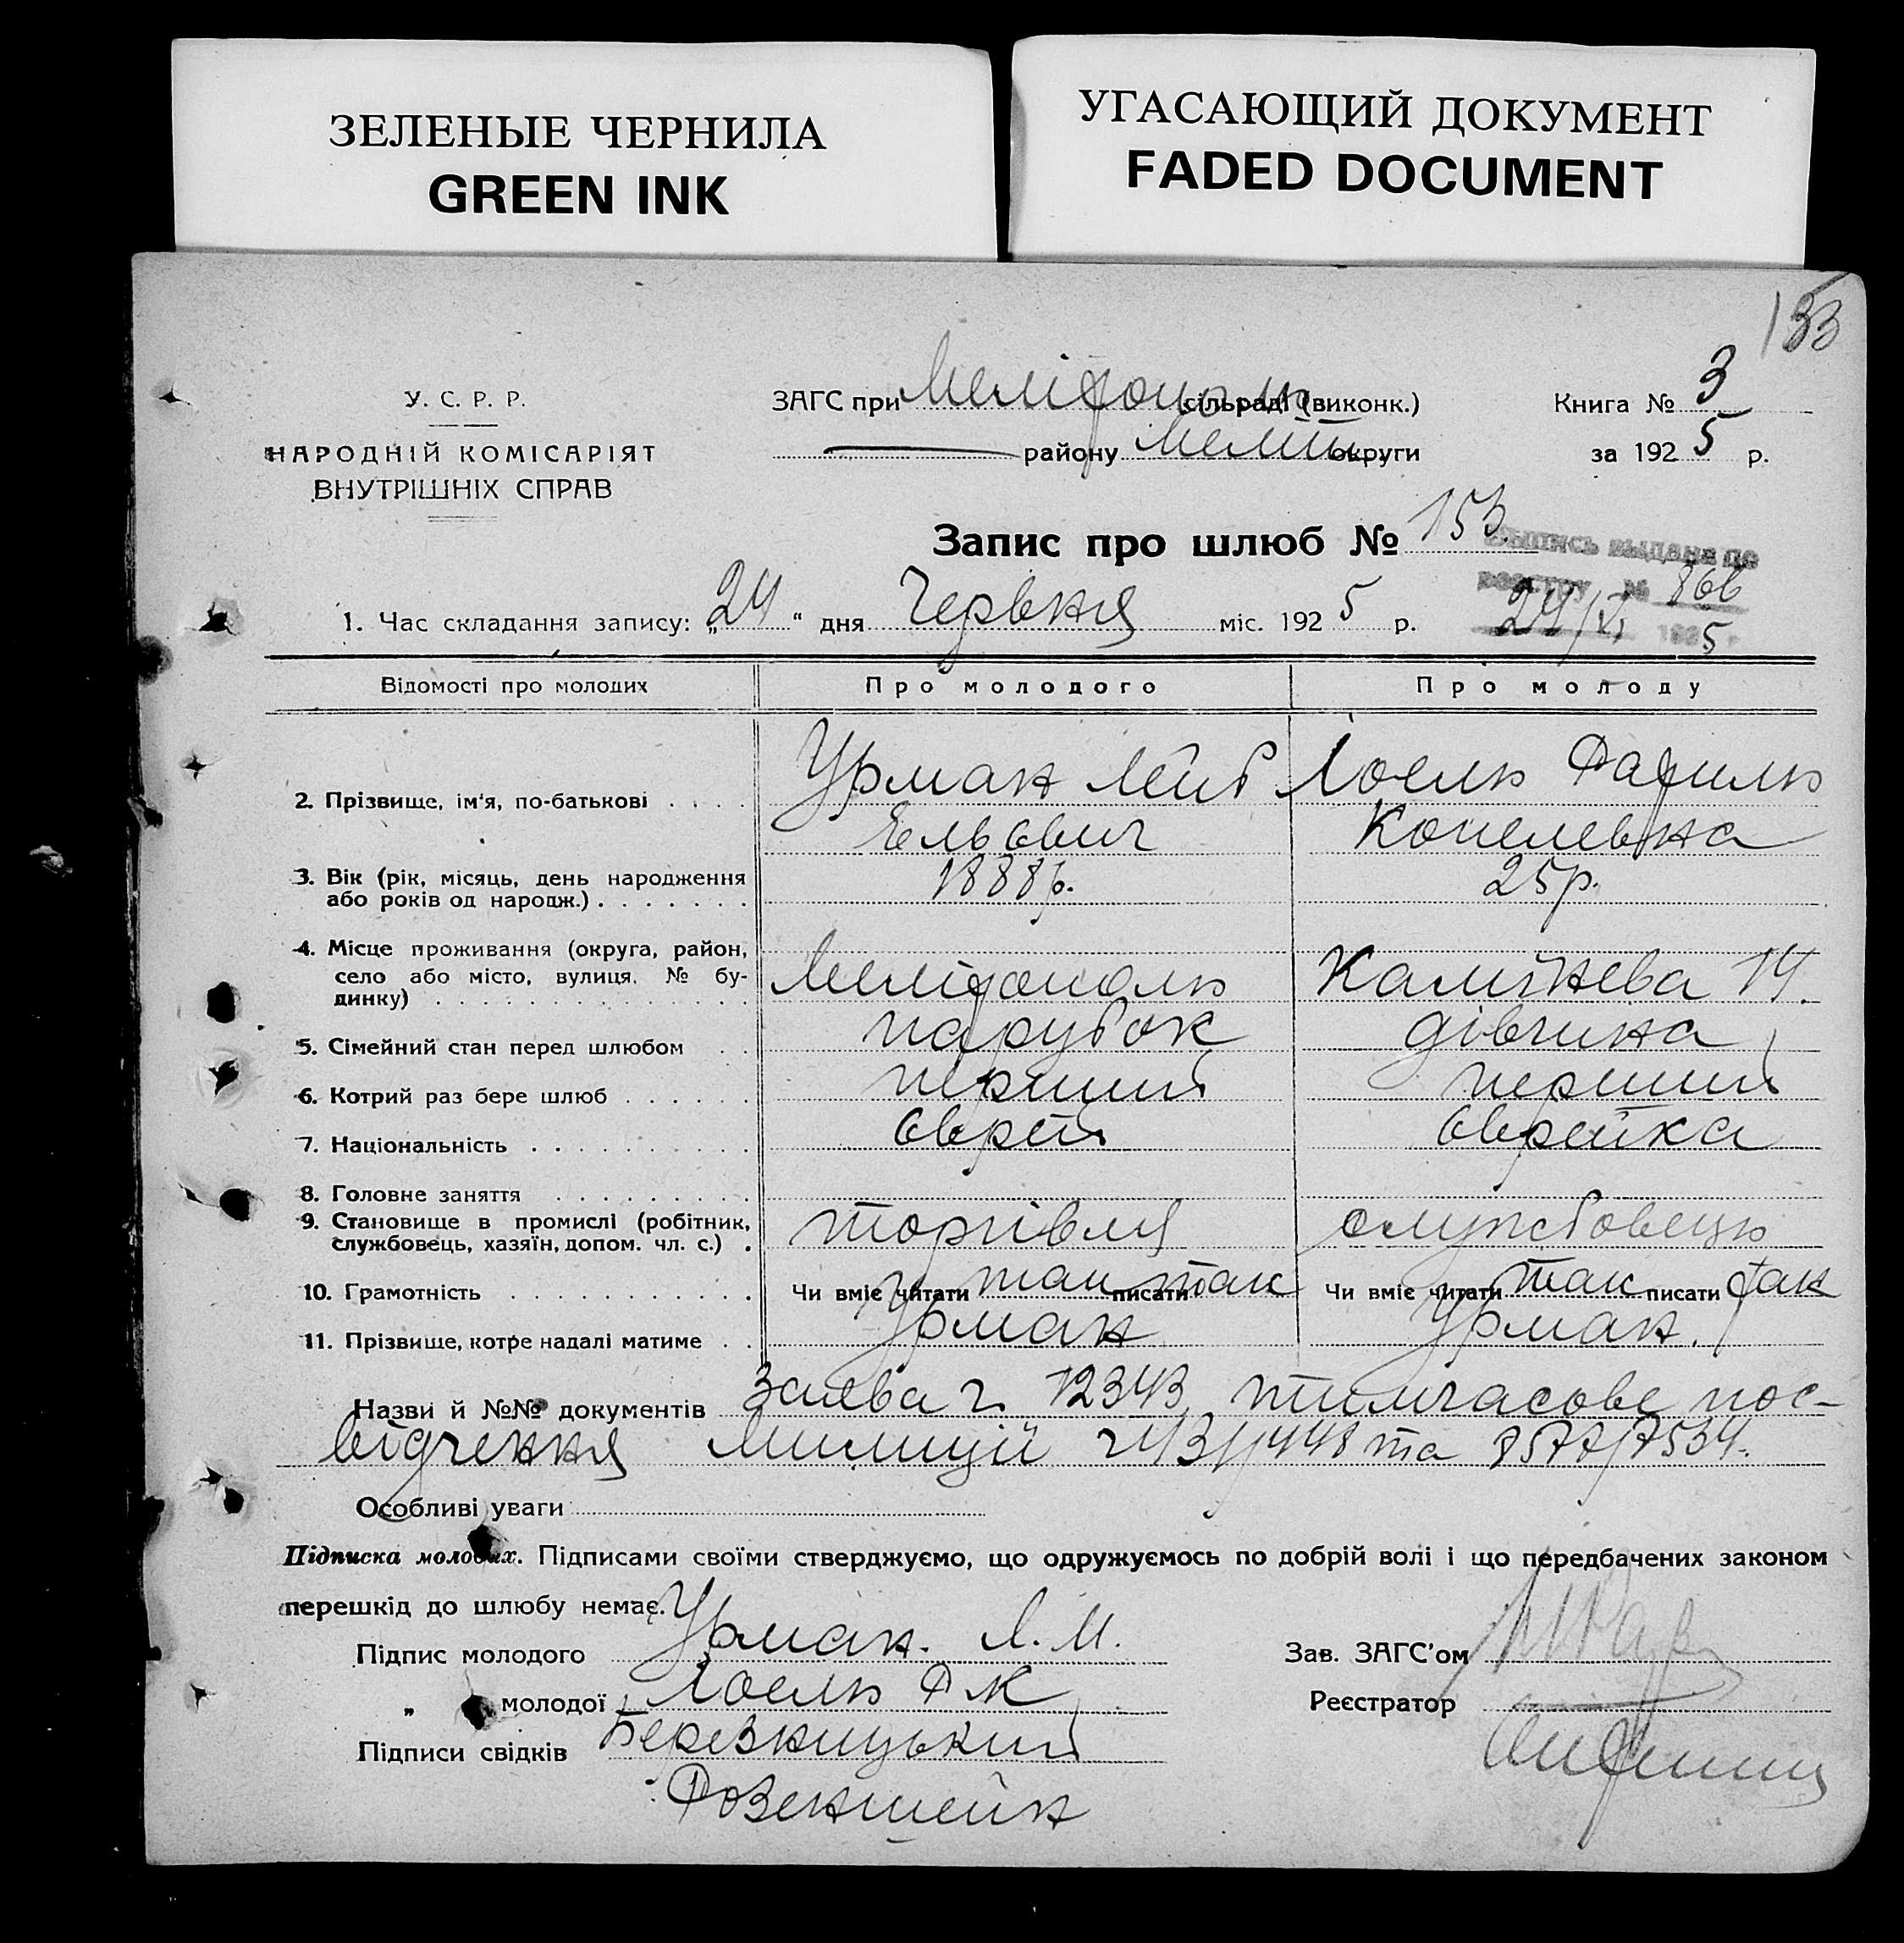 ЗЕЛЕНЫЕ ЧЕРНИЛА
GREEN INK
УГАСАЮЩИЙ ДОКУМЕНТ
FADED DOCUMENT
У. С. Р. Р.
НАРОДНІЙ КОМІСАРІЯТ
ВНУТРІШНІХ СПРАВ
ЗАГС при Мелітополь сільраді (виконк.)
району Меліт. округи
Книга № 3
за 1925 р.
Запис про шлюб № 153
Выпись выдана по
реестру № 866
24/VI 1925 г.
1. Час складання запису: „24“ дня Червня міс. 1925 р.
Відомості про молодих Про молодого Про молоду
2. Прізвище, ім'я, по-батькові . . . . Урман Лейб
Копелевна
3. Вік (рік, місяць, день народження або років од народж.) . . . . . . . 1888 р. 25 р.
4. Місце проживання (округа, район, село або місто, вулиця, № будинку) . . . . . . . . . . . . . . Мелітополь 14.
5. Сімейний стан перед шлюбом . . парубок дівчина
6. Котрий раз бере шлюб . . . . . . перший перший
7. Національність . . . . . . . . . . єврей єврейка
8. Головне заняття . . . . . . . . .
9. Становище в промислі (робітник, службовець, хазяїн, допом. чл. с.) . торгівля службовець
10. Грамотність . . . . . . . . . . . Чи вміє читати так писати так Чи вміє читати так писати так
11. Прізвище, котре надалі матиме . . Урман Урман.
Назви й №№ документів Заява ч. 12343, тимчасове пос-
відчення Милиції та
Особливі уваги
Підписка молодих. Підписами своїми стверджуємо, що одружуємось по добрій волі і що передбачених законом
перешкід до шлюбу немає.
Підпис молодого Урман. Л. М.
„ молодої
Підписи свідків Березницький
Розенштейн
Зав. ЗАГС'ом
Реєстратор